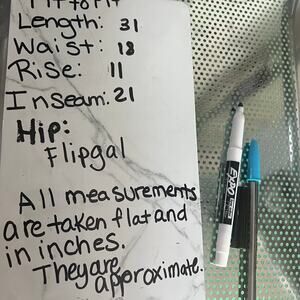 Pit to Pit
Length: 31
Waist: 18
Rise: 11
Inseam: 21
Hip:
Flipgal
All measurements
are taken flat and
in inches.
They are
approximate.
EXPO